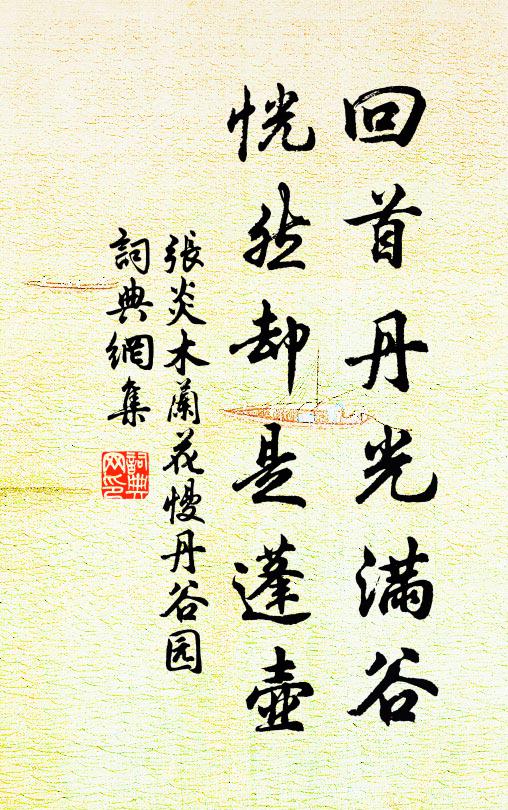 回首丹光满谷
恍然却是蓬壶
張炎木蘭花慢丹谷园
詞典網集
詞典
网印